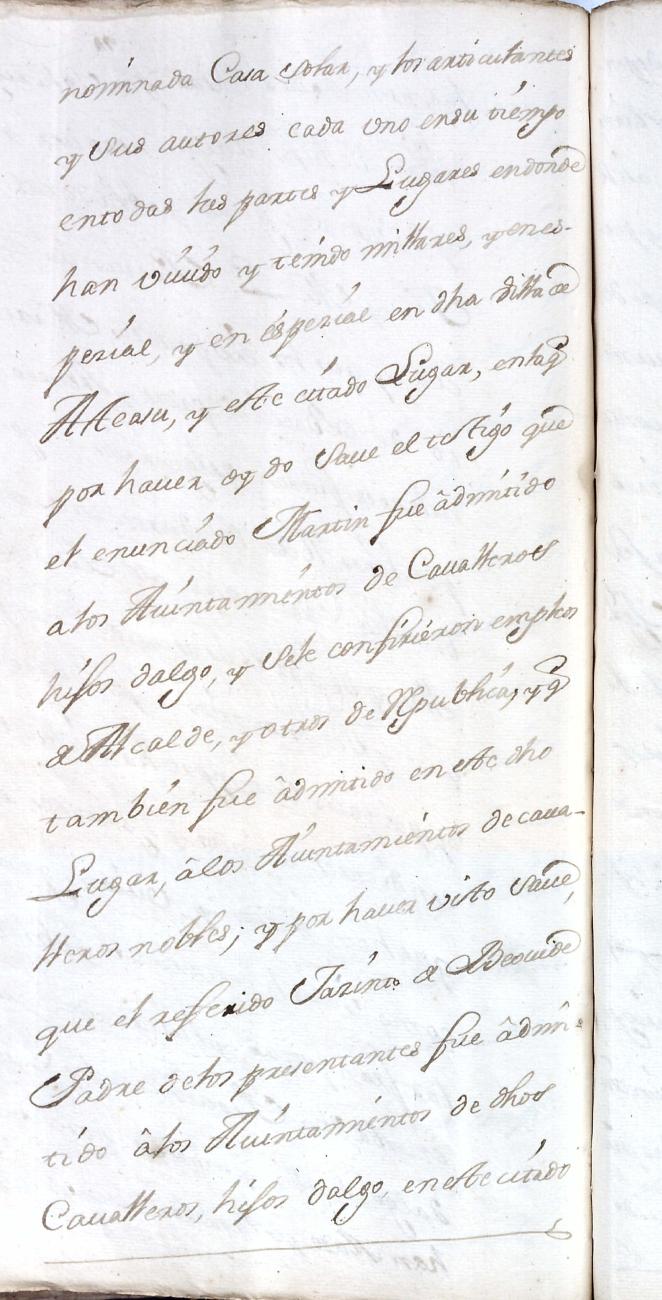 nominada Casa solar, y los articulantes
y sus autores cada vno en su tiempo
en todas las partes y Lugares en donde
han viuido y tenido millares, y en es-
pezial, y en éspezial en dha Villa de
Alleasu, y este citado Lugar, en la q̃
por hauer oydo saue el testigo que
el enunciado Martin fue âdmitido
a los Aiuntamientos de Caualleros
hisos dalgo, y sele confirieron empleos
de Alcalde, y otros de Rpublica, y q̃
tambien fue âdmitido en este dho
Lugar, âlos Aiuntamientos de caua-
lleros nobles; y por hauer visto saue,
que el referido Jazinto de Beouide
Padre delos presentantes fue âdmi-
tido âlos Aiuntamientos de dhos
Caualleros, hisos dalgo, en este citado